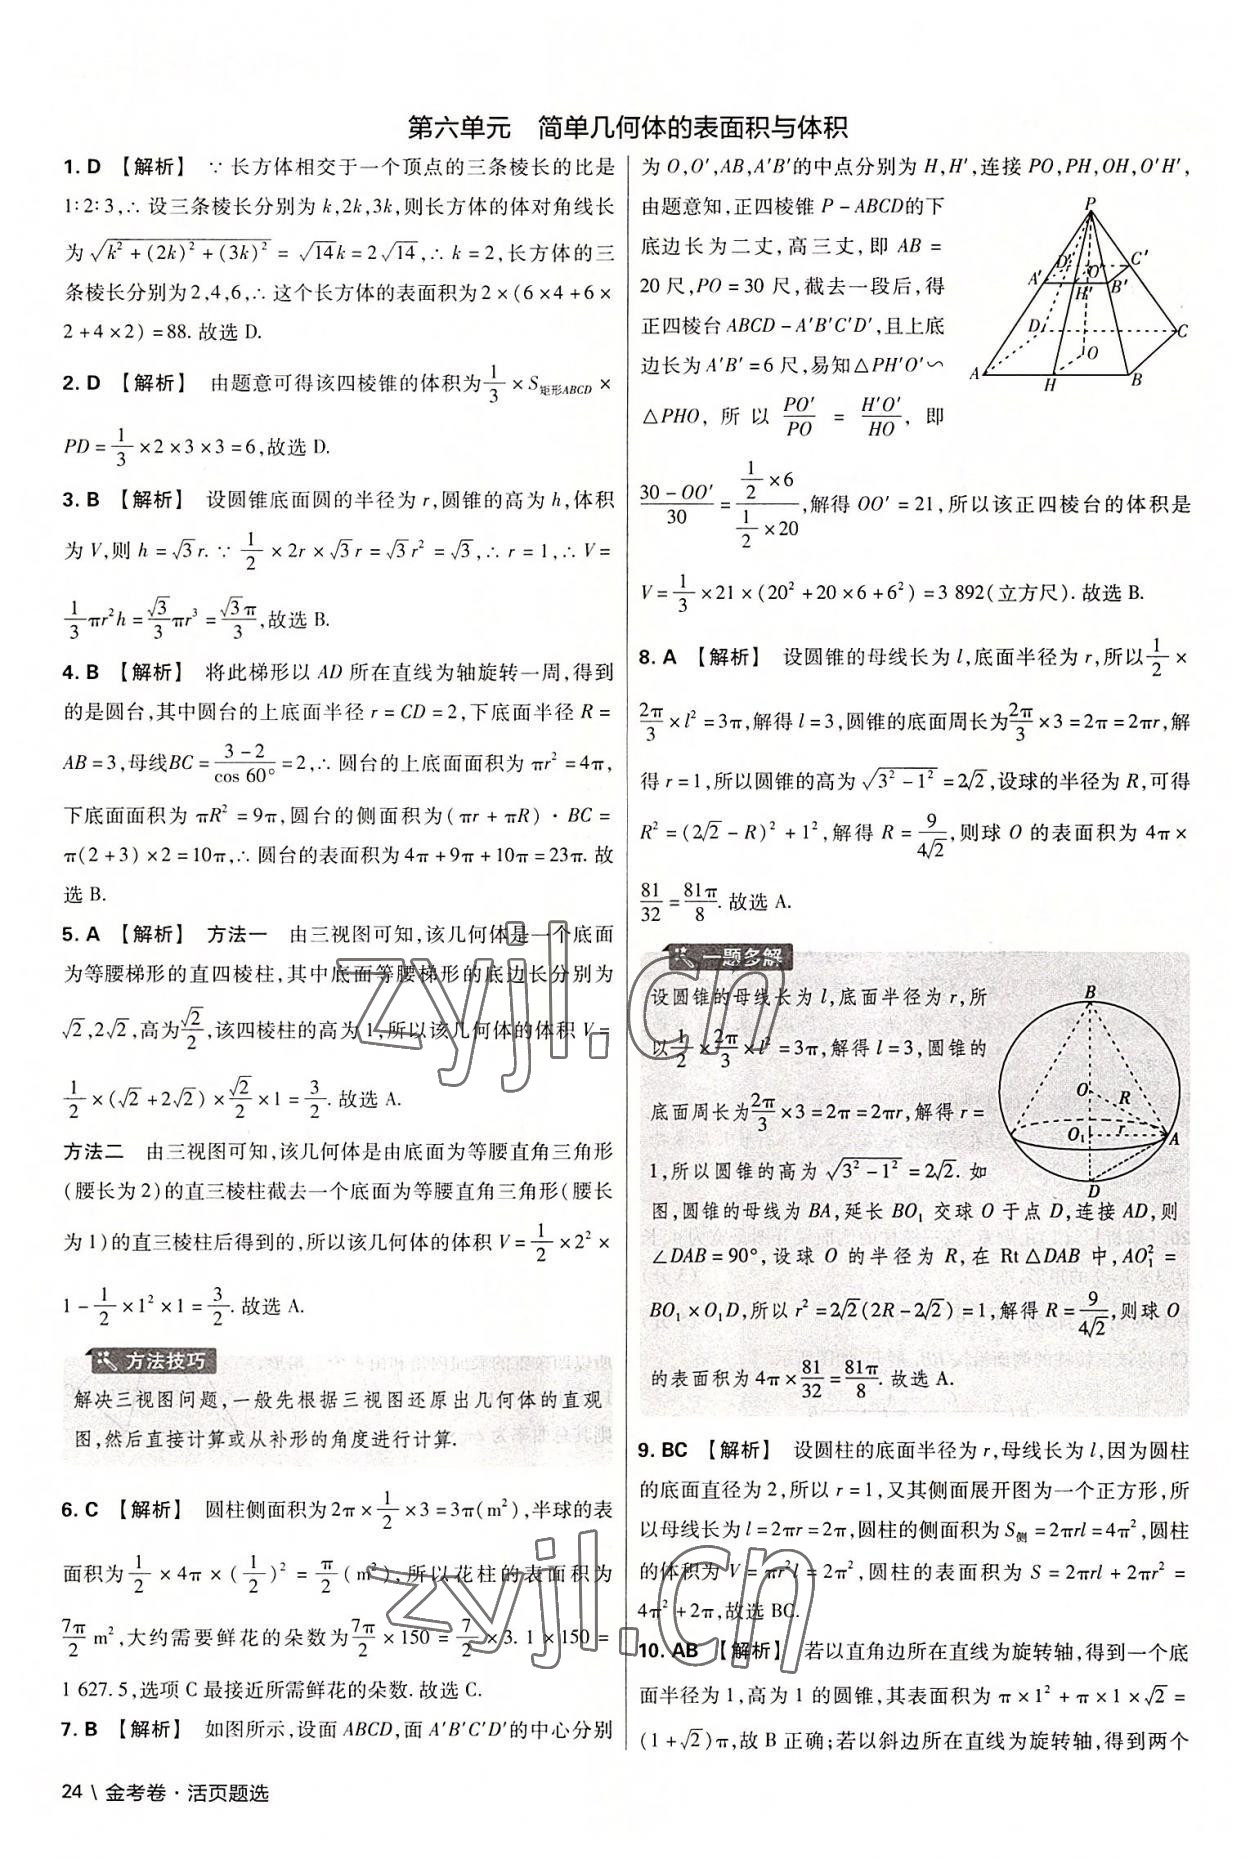 第六单元 简单几何体的表面积与体积
1. D 【解析】 ∵ 长方体相交于一个顶点的三条棱长的比是
1∶2∶3,∴ 设三条棱长分别为 k,2k,3k,则长方体的体对角线长
为√(k²+(2k)²+(3k)²) = √14k=2√14,∴ k=2,长方体的三
条棱长分别为2,4,6,∴ 这个长方体的表面积为2×(6×4+6×
2+4×2)=88. 故选 D.
2. D 【解析】 由题意可得该四棱锥的体积为1/3×S矩形ABCD×
PD=1/3×2×3×3=6,故选 D.
3. B 【解析】 设圆锥底面圆的半径为 r,圆锥的高为 h,体积
为 V,则 h=√3r. ∵ 1/2×2r×√3r=√3r²=√3,∴ r=1,∴ V=
1/3πr²h=√3/3πr³=√3π/3,故选 B.
4. B 【解析】 将此梯形以 AD 所在直线为轴旋转一周,得到
的是圆台,其中圆台的上底面半径 r=CD=2,下底面半径 R=
AB=3,母线BC=(3-2)/cos 60°=2,∴ 圆台的上底面面积为 πr²=4π,
下底面面积为 πR²=9π,圆台的侧面积为(πr+πR)·BC=
π(2+3)×2=10π,∴ 圆台的表面积为4π+9π+10π=23π. 故
选 B.
5. A 【解析】 方法一 由三视图可知,该几何体是一个底面
为等腰梯形的直四棱柱,其中底面等腰梯形的底边长分别为
√2,2√2,高为√2/2,该四棱柱的高为1,所以该几何体的体积 V=
1/2×(√2+2√2)×√2/2×1=3/2. 故选 A.
方法二 由三视图可知,该几何体是由底面为等腰直角三角形
(腰长为2)的直三棱柱截去一个底面为等腰直角三角形(腰长
为1)的直三棱柱后得到的,所以该几何体的体积 V=1/2×2²×
1-1/2×1²×1=3/2. 故选 A.
方法技巧
解决三视图问题,一般先根据三视图还原出几何体的直观
图,然后直接计算或从补形的角度进行计算.
6. C 【解析】 圆柱侧面积为2π×1/2×3=3π(m²),半球的表
面积为1/2×4π×(1/2)²=π/2(m²),所以花柱的表面积为
7π/2 m²,大约需要鲜花的朵数为7π/2×150=7/2×3.1×150=
1 627.5,选项 C 最接近所需鲜花的朵数. 故选 C.
7. B 【解析】 如图所示,设面 ABCD,面 A′B′C′D′的中心分别
为 O,O′,AB,A′B′的中点分别为 H,H′,连接 PO,PH,OH,O′H′,
由题意知,正四棱锥 P-ABCD的下
底边长为二丈,高三丈,即 AB=
20 尺,PO=30 尺,截去一段后,得
正四棱台 ABCD-A′B′C′D′,且上底
边长为 A′B′=6 尺,易知△PH′O′∽
△PHO,所以 PO′/PO = H′O′/HO,即
P
D′
C′
A′
O′
H′
B′
D
C
O
A
H
B
(30-OO′)/30=(1/2×6)/(1/2×20),解得 OO′=21,所以该正四棱台的体积是
V=1/3×21×(20²+20×6+6²)=3 892(立方尺). 故选 B.
8. A 【解析】 设圆锥的母线长为 l,底面半径为 r,所以1/2×
2π/3×l²=3π,解得 l=3,圆锥的底面周长为2π/3×3=2π=2πr,解
得 r=1,所以圆锥的高为√(3²-1²)=2√2,设球的半径为 R,可得
R²=(2√2-R)²+1²,解得 R=9/(4√2),则球 O 的表面积为 4π×
81/32=81π/8. 故选 A.
一题多解
设圆锥的母线长为 l,底面半径为 r,所
以1/2×2π/3×l²=3π,解得 l=3,圆锥的
底面周长为2π/3×3=2π=2πr,解得 r=
1,所以圆锥的高为√(3²-1²)=2√2. 如
B
O
R
O₁
r
A
D
图,圆锥的母线为 BA,延长 BO₁ 交球 O 于点 D,连接 AD,则
∠DAB=90°,设球 O 的半径为 R,在 Rt△DAB 中,AO₁²=
BO₁×O₁D,所以 r²=2√2(2R-2√2)=1,解得 R=9/(4√2),则球 O
的表面积为 4π×81/32=81π/8. 故选 A.
9. BC 【解析】 设圆柱的底面半径为 r,母线长为 l,因为圆柱
的底面直径为2,所以 r=1,又其侧面展开图为一个正方形,所
以母线长为 l=2πr=2π,圆柱的侧面积为 S侧=2πrl=4π²,圆柱
的体积为 V=πr²l=2π²,圆柱的表面积为 S=2πrl+2πr²=
4π²+2π,故选 BC.
10. AB 【解析】 若以直角边所在直线为旋转轴,得到一个底
面半径为1,高为1的圆锥,其表面积为 π×1²+π×1×√2=
(1+√2)π,故 B 正确;若以斜边所在直线为旋转轴,得到两个
24\金考卷·活页题选
zyjl.cn
zyjl.cn